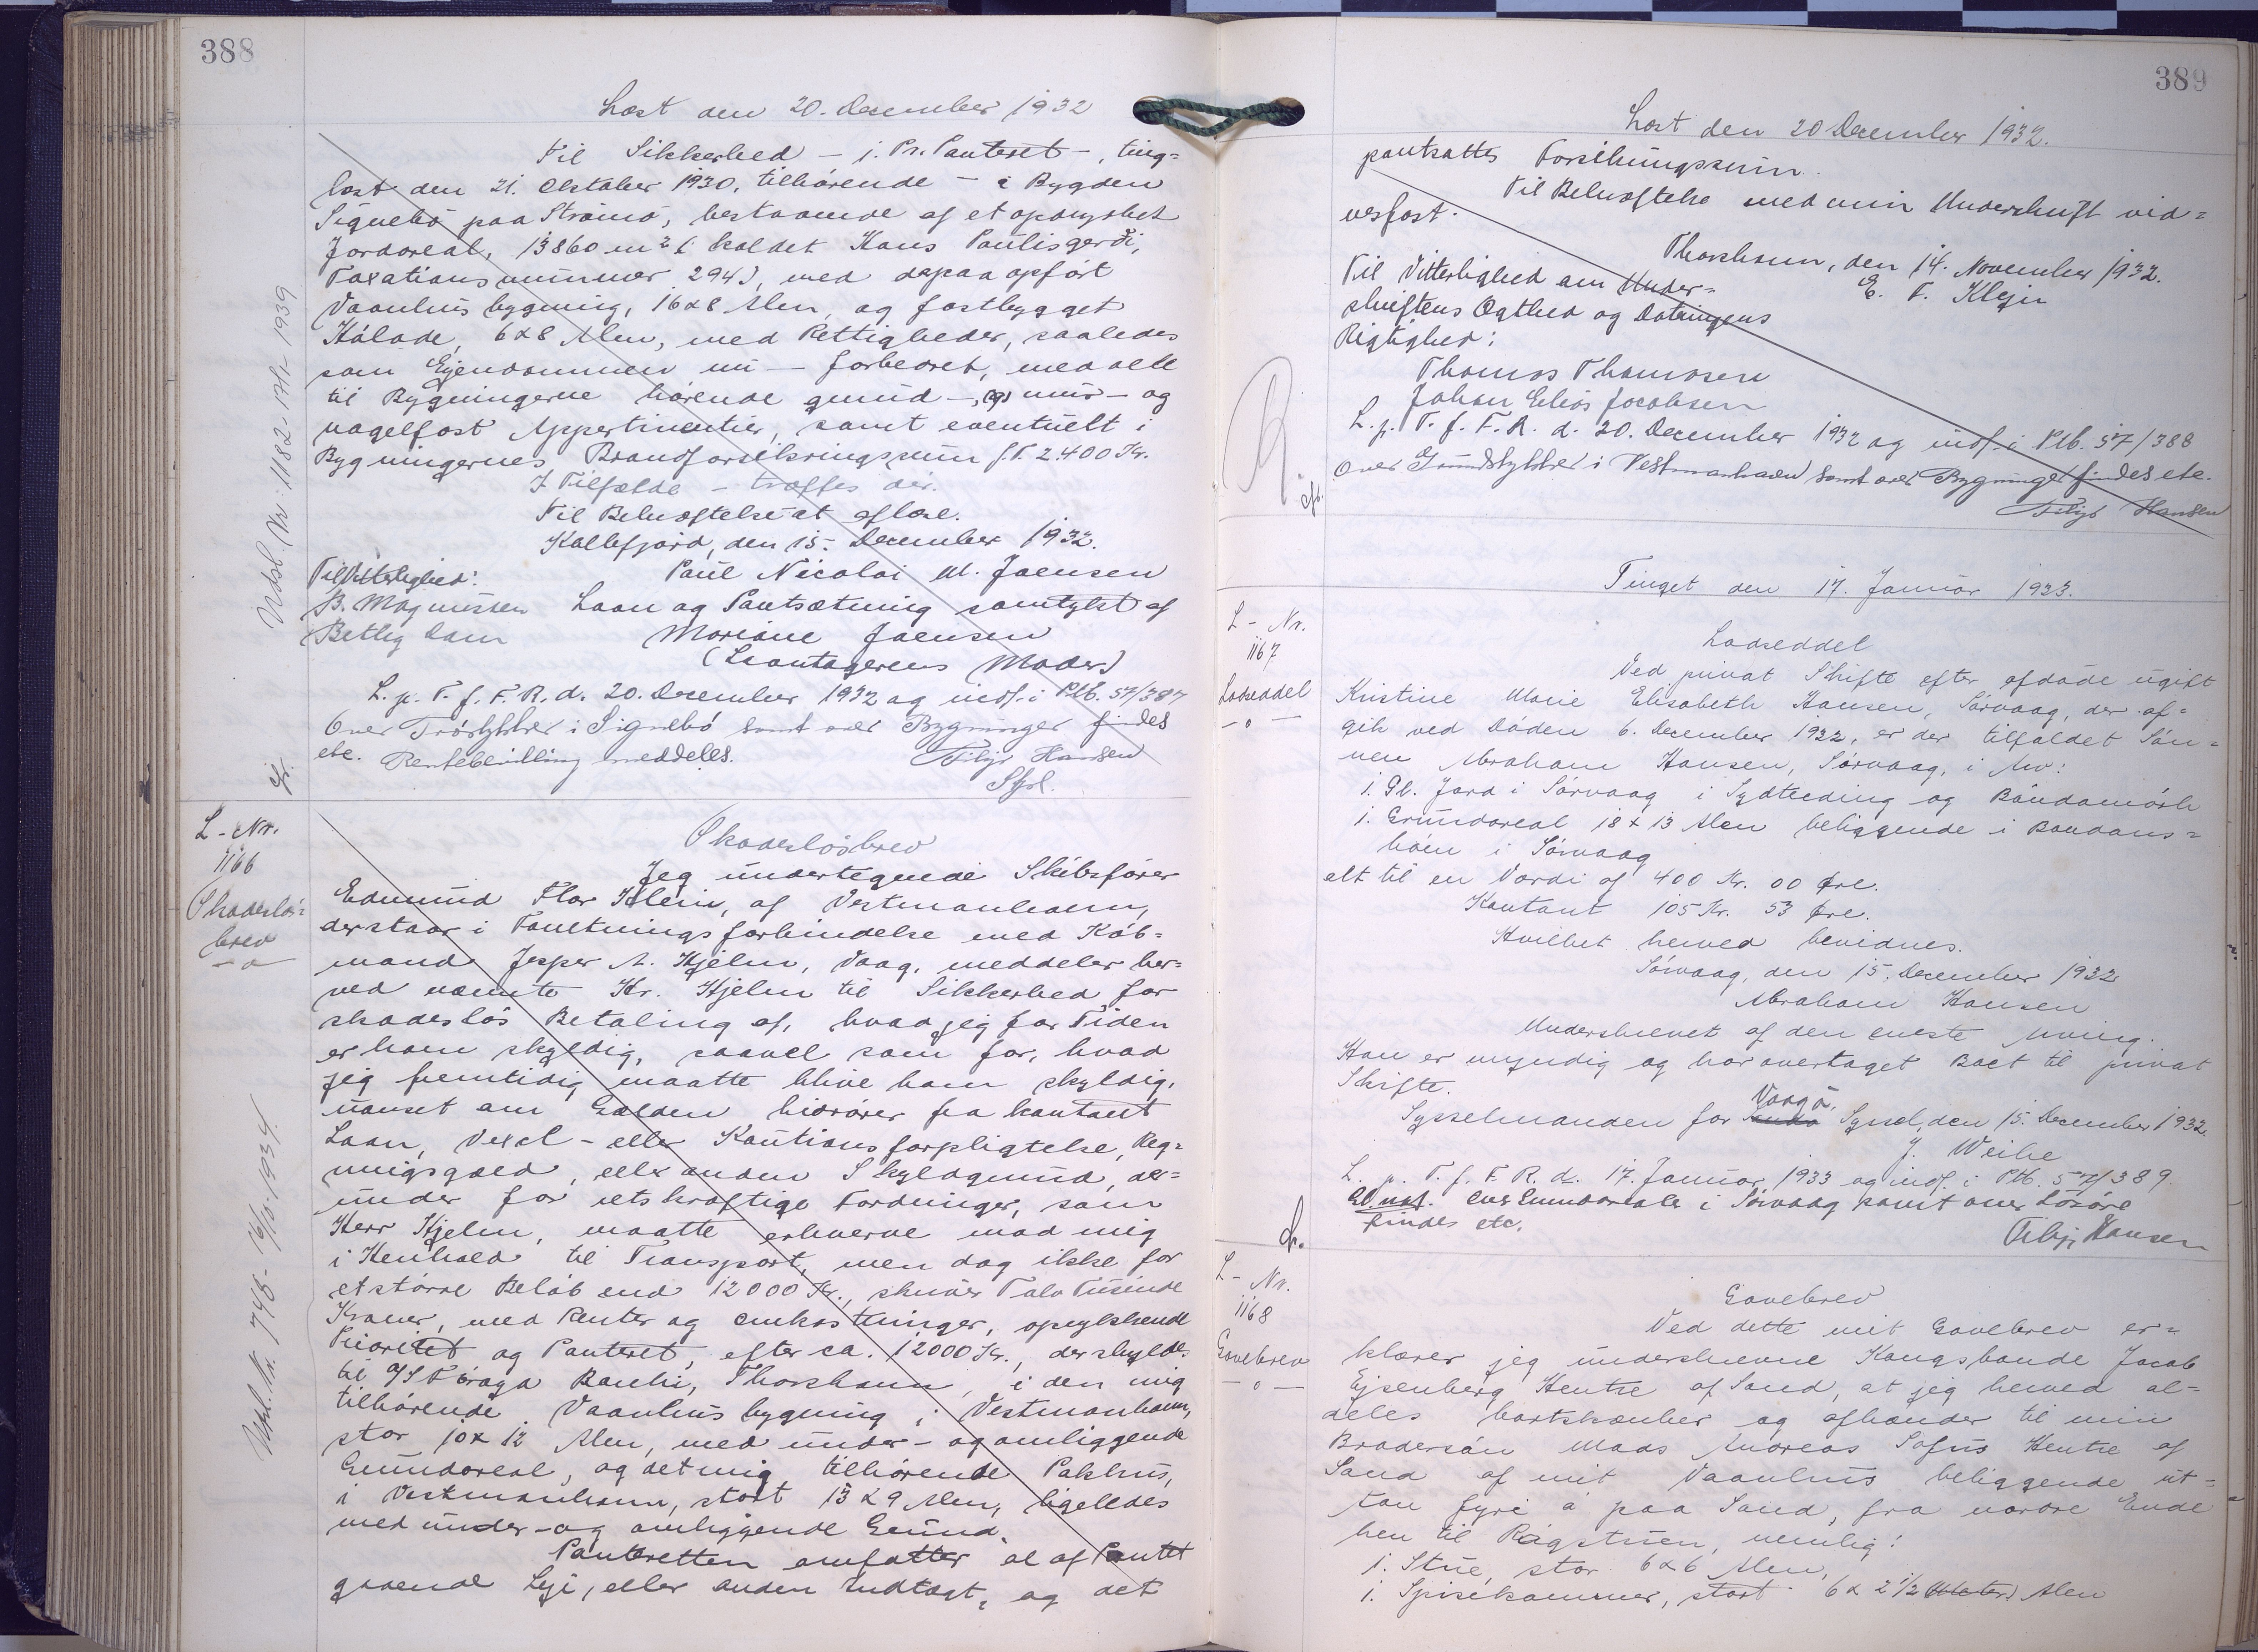 388
Læst den 20. December 1932
Til Sikkerhed - j. Pr. Panteret -, ting=
læst den 21. Oktober 1930, tilhørende - i Bygden
Signebø paa Strømø, bestaaende af et opdyrket
Jordareal, 13860 m² (kaldet Hans Paulisgerði,
Taxationsnummer 294), med derpaa opført
Vaanhusbygning, 16x8 Alen, og fastbygget
Hølade, 6x8 Alen, med Rettigheder, saaledes
som Ejendommen nu - forbedret, med alt
til Bygningerne hørende grund-, (og) mur- og
nagelfast Appertinentier, samt eventuelt i
Bygningernes Brandforsikringssum f.T. 2.400 Kr.
I Tilfælde - træffes der.
Til Bekræftelse at aflæse.
Kollefjord, den 15. December 1932.
Til Vitterlighed:
Paul Nicolai M. Joensen
B. Magnussen
Laan og Pantsætning samtykt af
Betty Dam
Mariane Joensen
(Laantagerens Moder)
L. p. T. f. F. R. d. 20. December 1932 og indf. i Ptb. 57/387
Over Trøstykker i Signebø samt over Bygninger findes
etc. Rentebevilling meddeles.
Filip Hansen
Sfst.
Udsl. Nr. 1182-17/1-1939
L - Nr.
1166
Skadesløs=
brev
- o
Skadesløsbrev
Jeg undertegnede Skibsfører
Edmund Flor Klein, af Vestmanhavn,
der staar i Forretningsforbindelse med Køb=
mand Jesper A. Hjelm, Vaag, meddeler her=
ved nævnte Hr. Hjelm til Sikkerhed for
skadesløs Betaling af, hvad jeg for Tiden
er ham skyldig, saavel som for, hvad
jeg fremtidig maatte blive ham skyldig,
uanset om Gælden hidrører fra kontant
Laan, Vexel- eller Kautionsforpligtelse, Reg=
ningsgæld, eller anden Skyldgrund, der=
under for retskraftige Fordringer, som
Herr Hjelm, maatte erhverve mod mig
i Henhold til Transport, men dog ikke for
et større Beløb end 12000 Kr., skriver Tolv Tusinde
Kroner, med Renter og Omkostninger, oprykkende
Prioritet og Panteret, efter ca. 12000 Kr., der skyldes
til A/S Føroya Banki, Thorshavn, i den mig
tilhørende Vaanhusbygning i Vestmanhavn,
stor 10x12 Alen, med under- og omliggende
Grundareal, og det mig tilhørende Pakhus,
i Vestmanhavn, stort 13x9 Alen, ligeledes
med under- og omliggende Grund.
Panteretten omfatter al af Pantet
gaaende Leje, eller anden Indtægt, og det
Udsl. Nr. 748 - 16/10 1934
389
Læst den 20 December 1932.
pantsattes Forsikringssum.
Til Bekræftelse med min Underskrift vid=
nesfast.
Thorshavn, den 14. November 1932.
Til Vitterlighed om Under=
E. F. Klein
skriftens Ægthed og Dateringens
Rigtighed:
Thomas Thomasen
Johan Elias Jacobsen
L. p. T. f. F. R. d. 20. December 1932 og indf. i Ptb. 57/388
Over Grundstykker i Vestmanhavn samt over Bygninger findes etc.
Filip Hansen
Tinget den 17. Januar 1933.
L - Nr.
1167
Lodseddel
- o -
Lodseddel
Ved privat Skifte efter afdøde ugift
Kristine Marie Elisabeth Hansen, Sørvaag, der af=
gik ved Døden 6. December 1922, er der tilfaldet Søn=
nen Abraham Hansen, Sørvaag, i Arv:
1. Gl. Jord i Sørvaag i Sydteding og Bøndamørk
1. Grundareal 18x13 Alen beliggende i Bøndans=
høin i Sørvaag
alt til en Værdi af 400 Kr. 00 Øre.
Kontant 105 Kr. 53 Øre.
Hvilket herved bevidnes.
Sørvaag, den 15. December 1932
Abraham Hansen
Underskrevet af den eneste Arving.
Han er myndig og har overtaget Boet til privat
Skifte.
Vaagø
Sysselmanden for Syssel, den 15. December 1932.
J. Weihe
L. p. T. f. F. R. d. 17. Januar 1933 og indf. i Ptb. 57/389.
Over Grundarealer i Sørvaag samt over Løsøre
findes etc.
Filip Hansen
L - Nr.
1168
Gavebrev
- o -
Gavebrev
Ved dette mit Gavebrev er=
klærer jeg underskrevne Kongsbonde Jacob
Ejsenberg Hentze af Sand, at jeg herved al=
deles bortskænker og afhænder til min
Brodersøn Mads Andreas Sofus Hentze af
Sand af mit Vaanhus beliggende ut=
tan fyri á paa Sand, fra nordre Ende
hen til Røgstuen, nemlig:
1. Stue, stor 6x6 Alen,
1. Spisekammer, stort 6x2½ (Meter) Alen